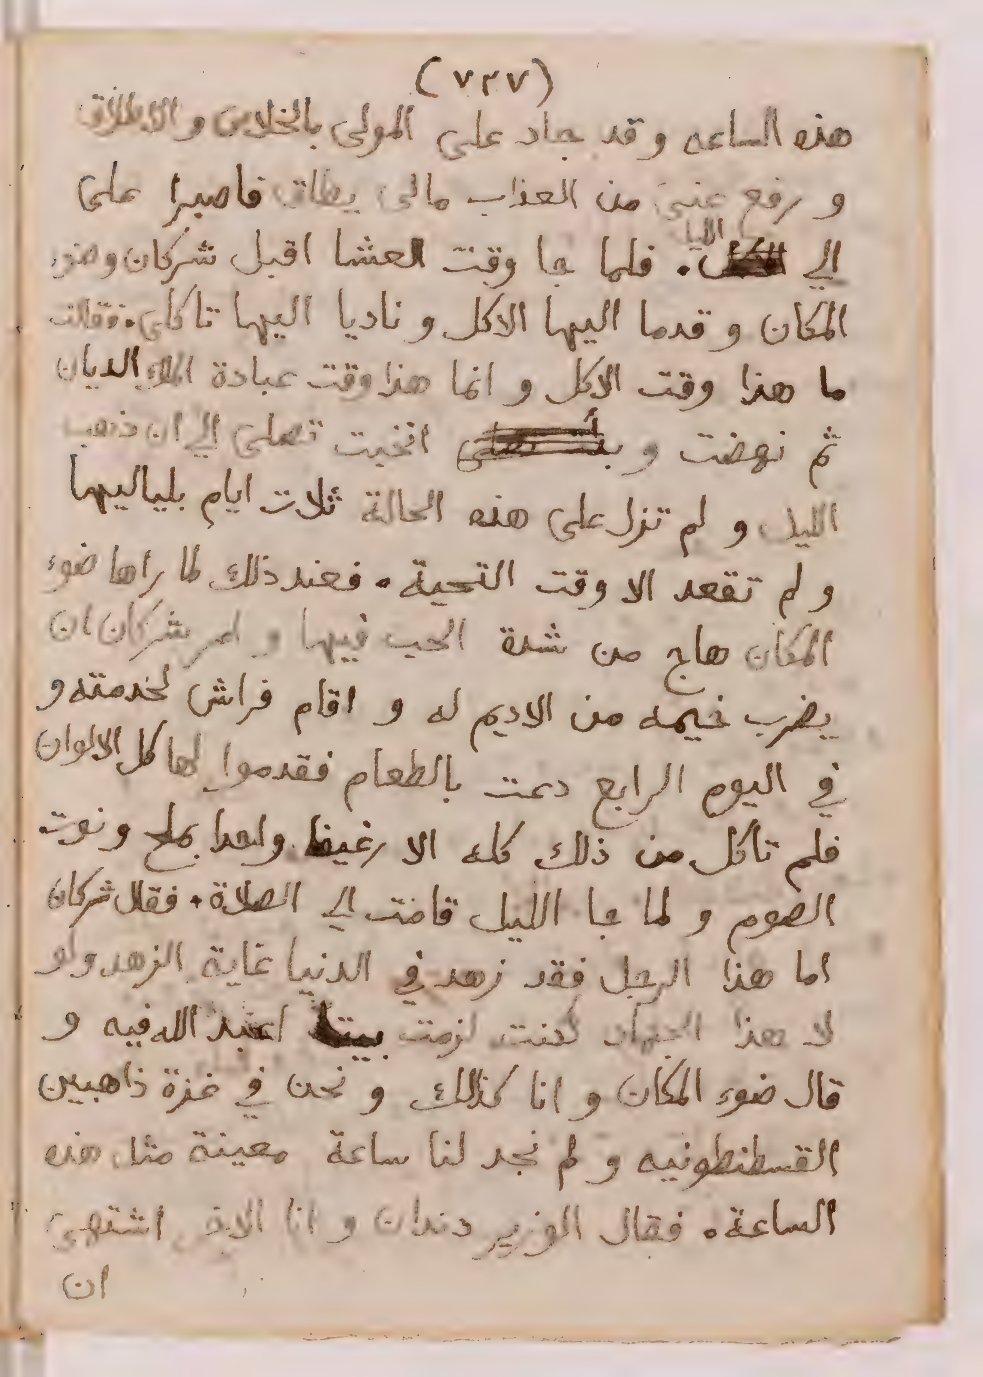 (٧٢٧)
هذه الساعه و قد جاد على المولى بالخلاص و الاطلاق
و رفع عنى من العذاب مالى يطاق فاصبرا على
الي الليل . فلما جا وقت العشا اقبل شركان وضوء
المكان و قدما اليها الاكل و ناديا اليها تاكلى . فقالت
ما هذا وقت الاكل و انما هذا وقت عبادة الملك الديان
ثم نهضت و انخبت تصلى الي ان ذهب
الليل و لم تزل على هذه الحالة ثلات ايام بلياليها
و لم تقعد الا وقت التحية . فعند ذلك لما راها ضوء
المكان هاج من شدة الحب فيها و امر شركان ان
يضرب خيمه من الاديم له و اقام فراش لخدمته و
في اليوم الرابع دعت بالطعام فقدموا لها كل الالوان
فلم تاكل من ذلك كله الا رغيفا واحدا بملح و نوت
الصوم و لما جا الليل قامت الي الصلاة . فقال شركان
اما هذا الرجل فقد زهد في الدنيا غاية الزهد ولو
لا هذا الجهاد لكنت لزمت بيتا اعبد الله فيه و
قال ضوء المكان و انا كذلك و نحن في غزة ذاهبين
القسطنطونيه و لم نجد لنا ساعة معينة مثل هذه
الساعة . فقال الوزير دندان و انا الاخر اشتهى
ان